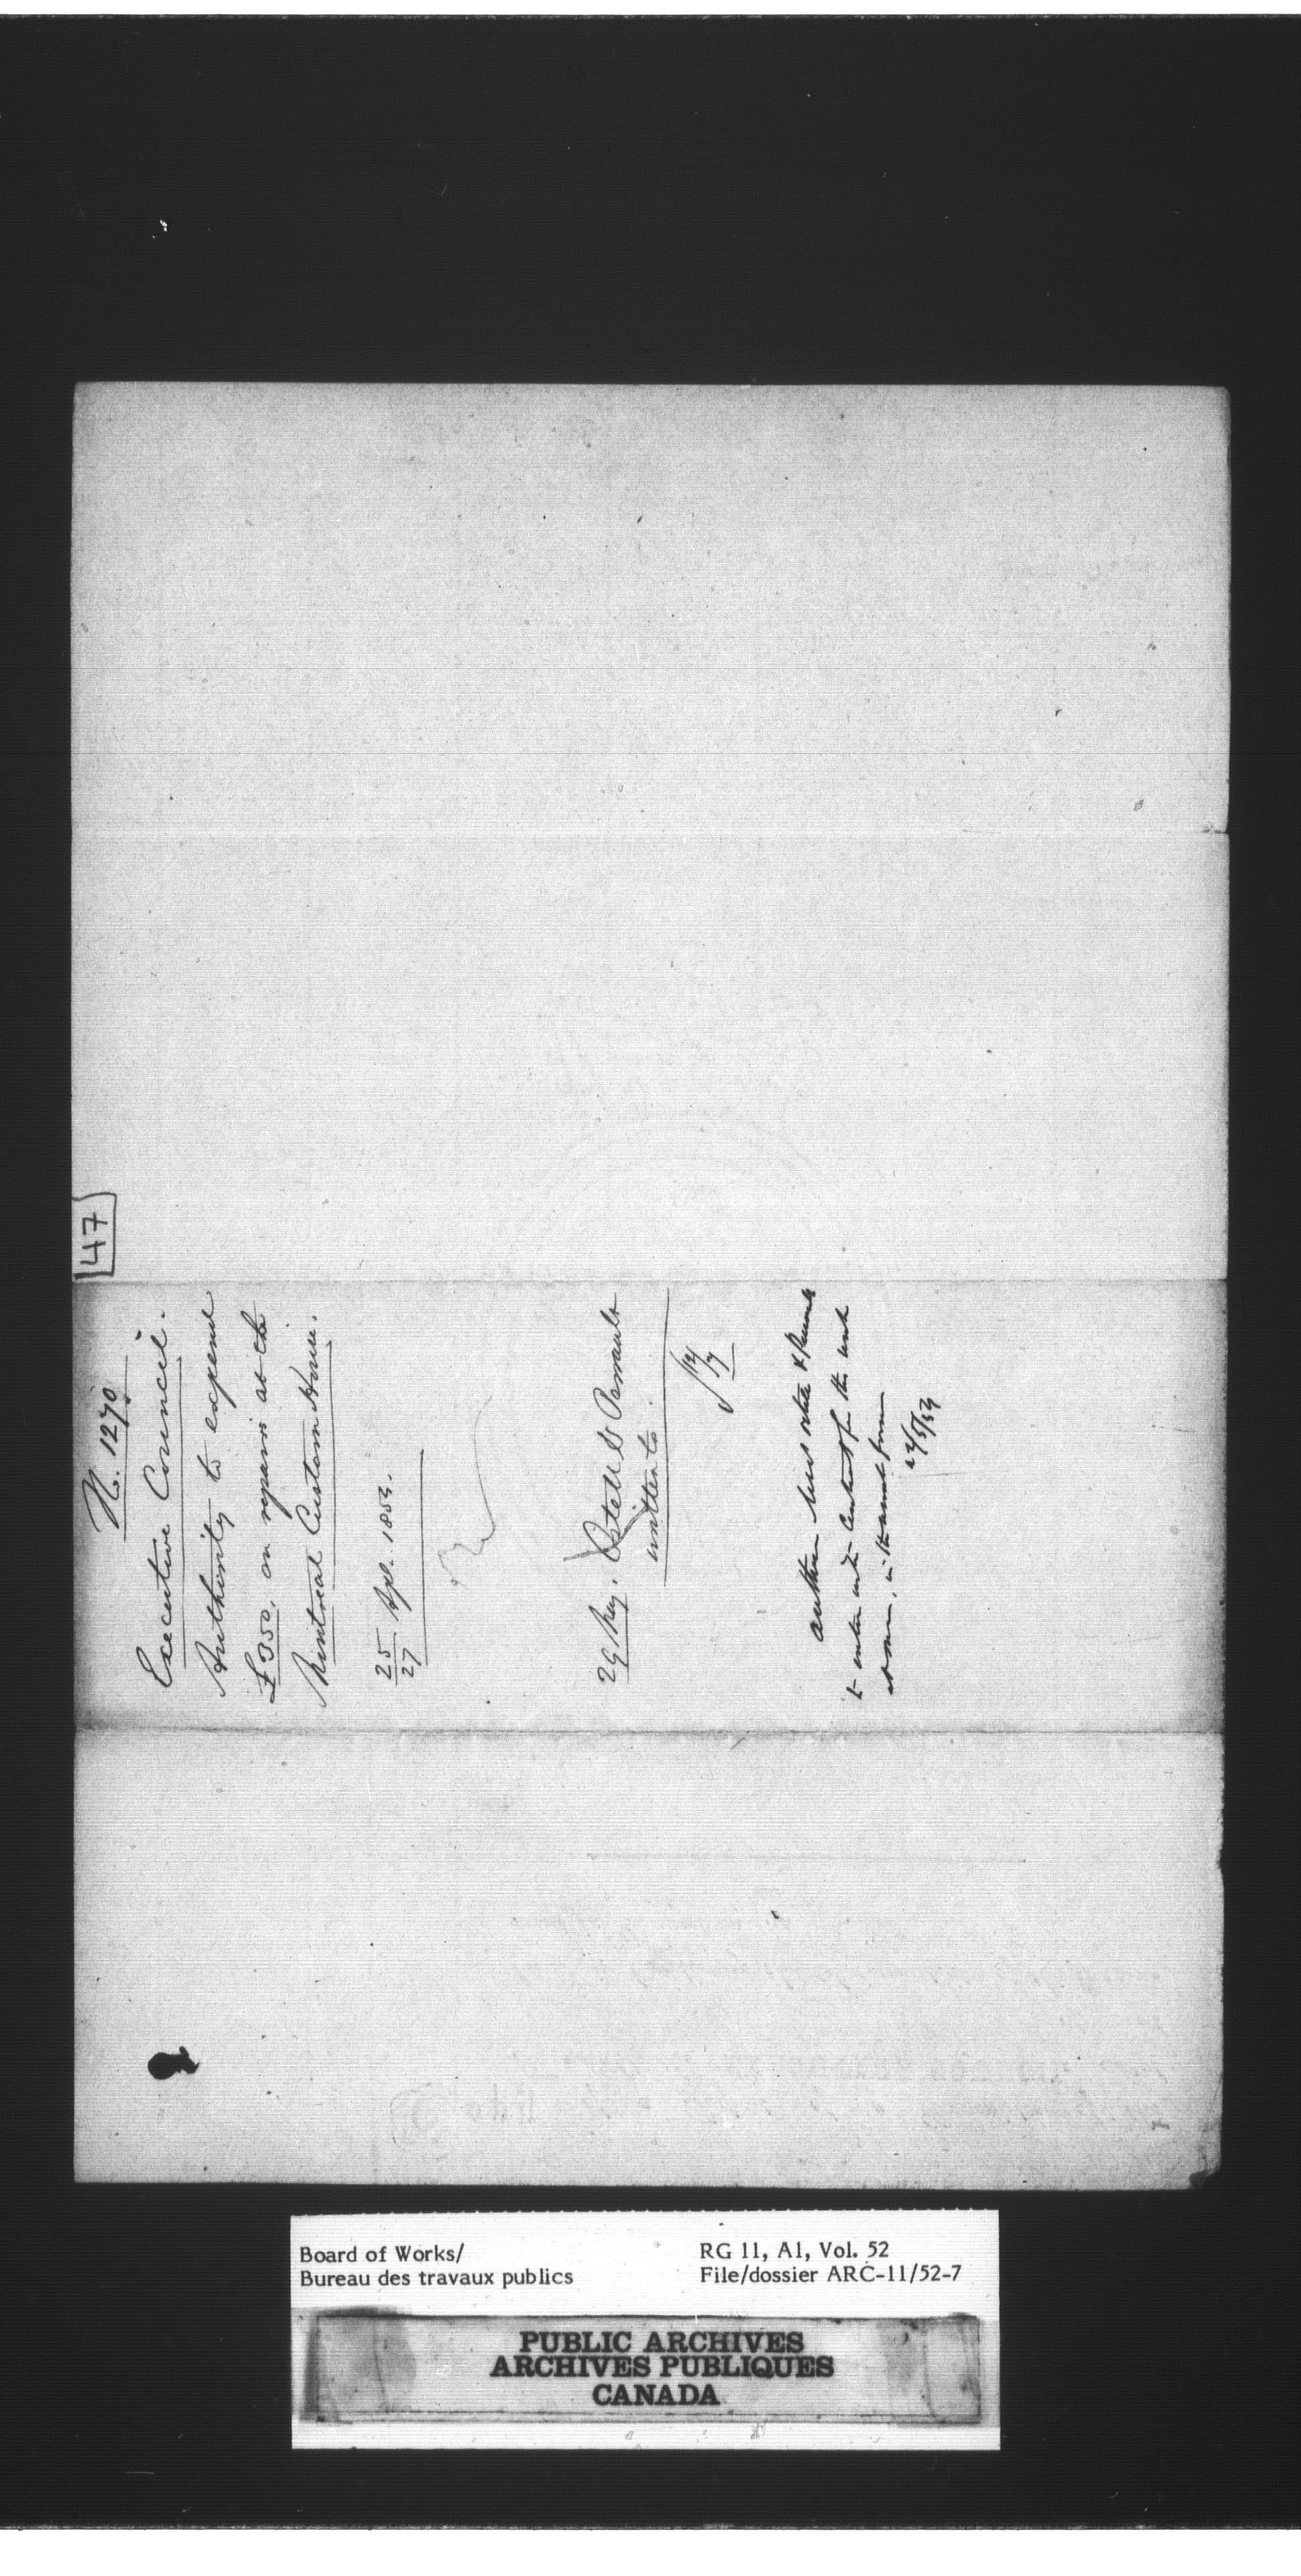 47
No. 1270
Executive Council.
Authority to expend
£350, on repairs at the
Montreal Custom House.
25/27 Apl. 1854.
29 May. Ostell & Perrault
written to
authorise Mess
to enter into Contract for the work
24/5/54
Board of Works/
Bureau des travaux publics
RG 11, A1, Vol. 52
File/dossier ARC-11/52-7
PUBLIC ARCHIVES
ARCHIVES PUBLIQUES
CANADA